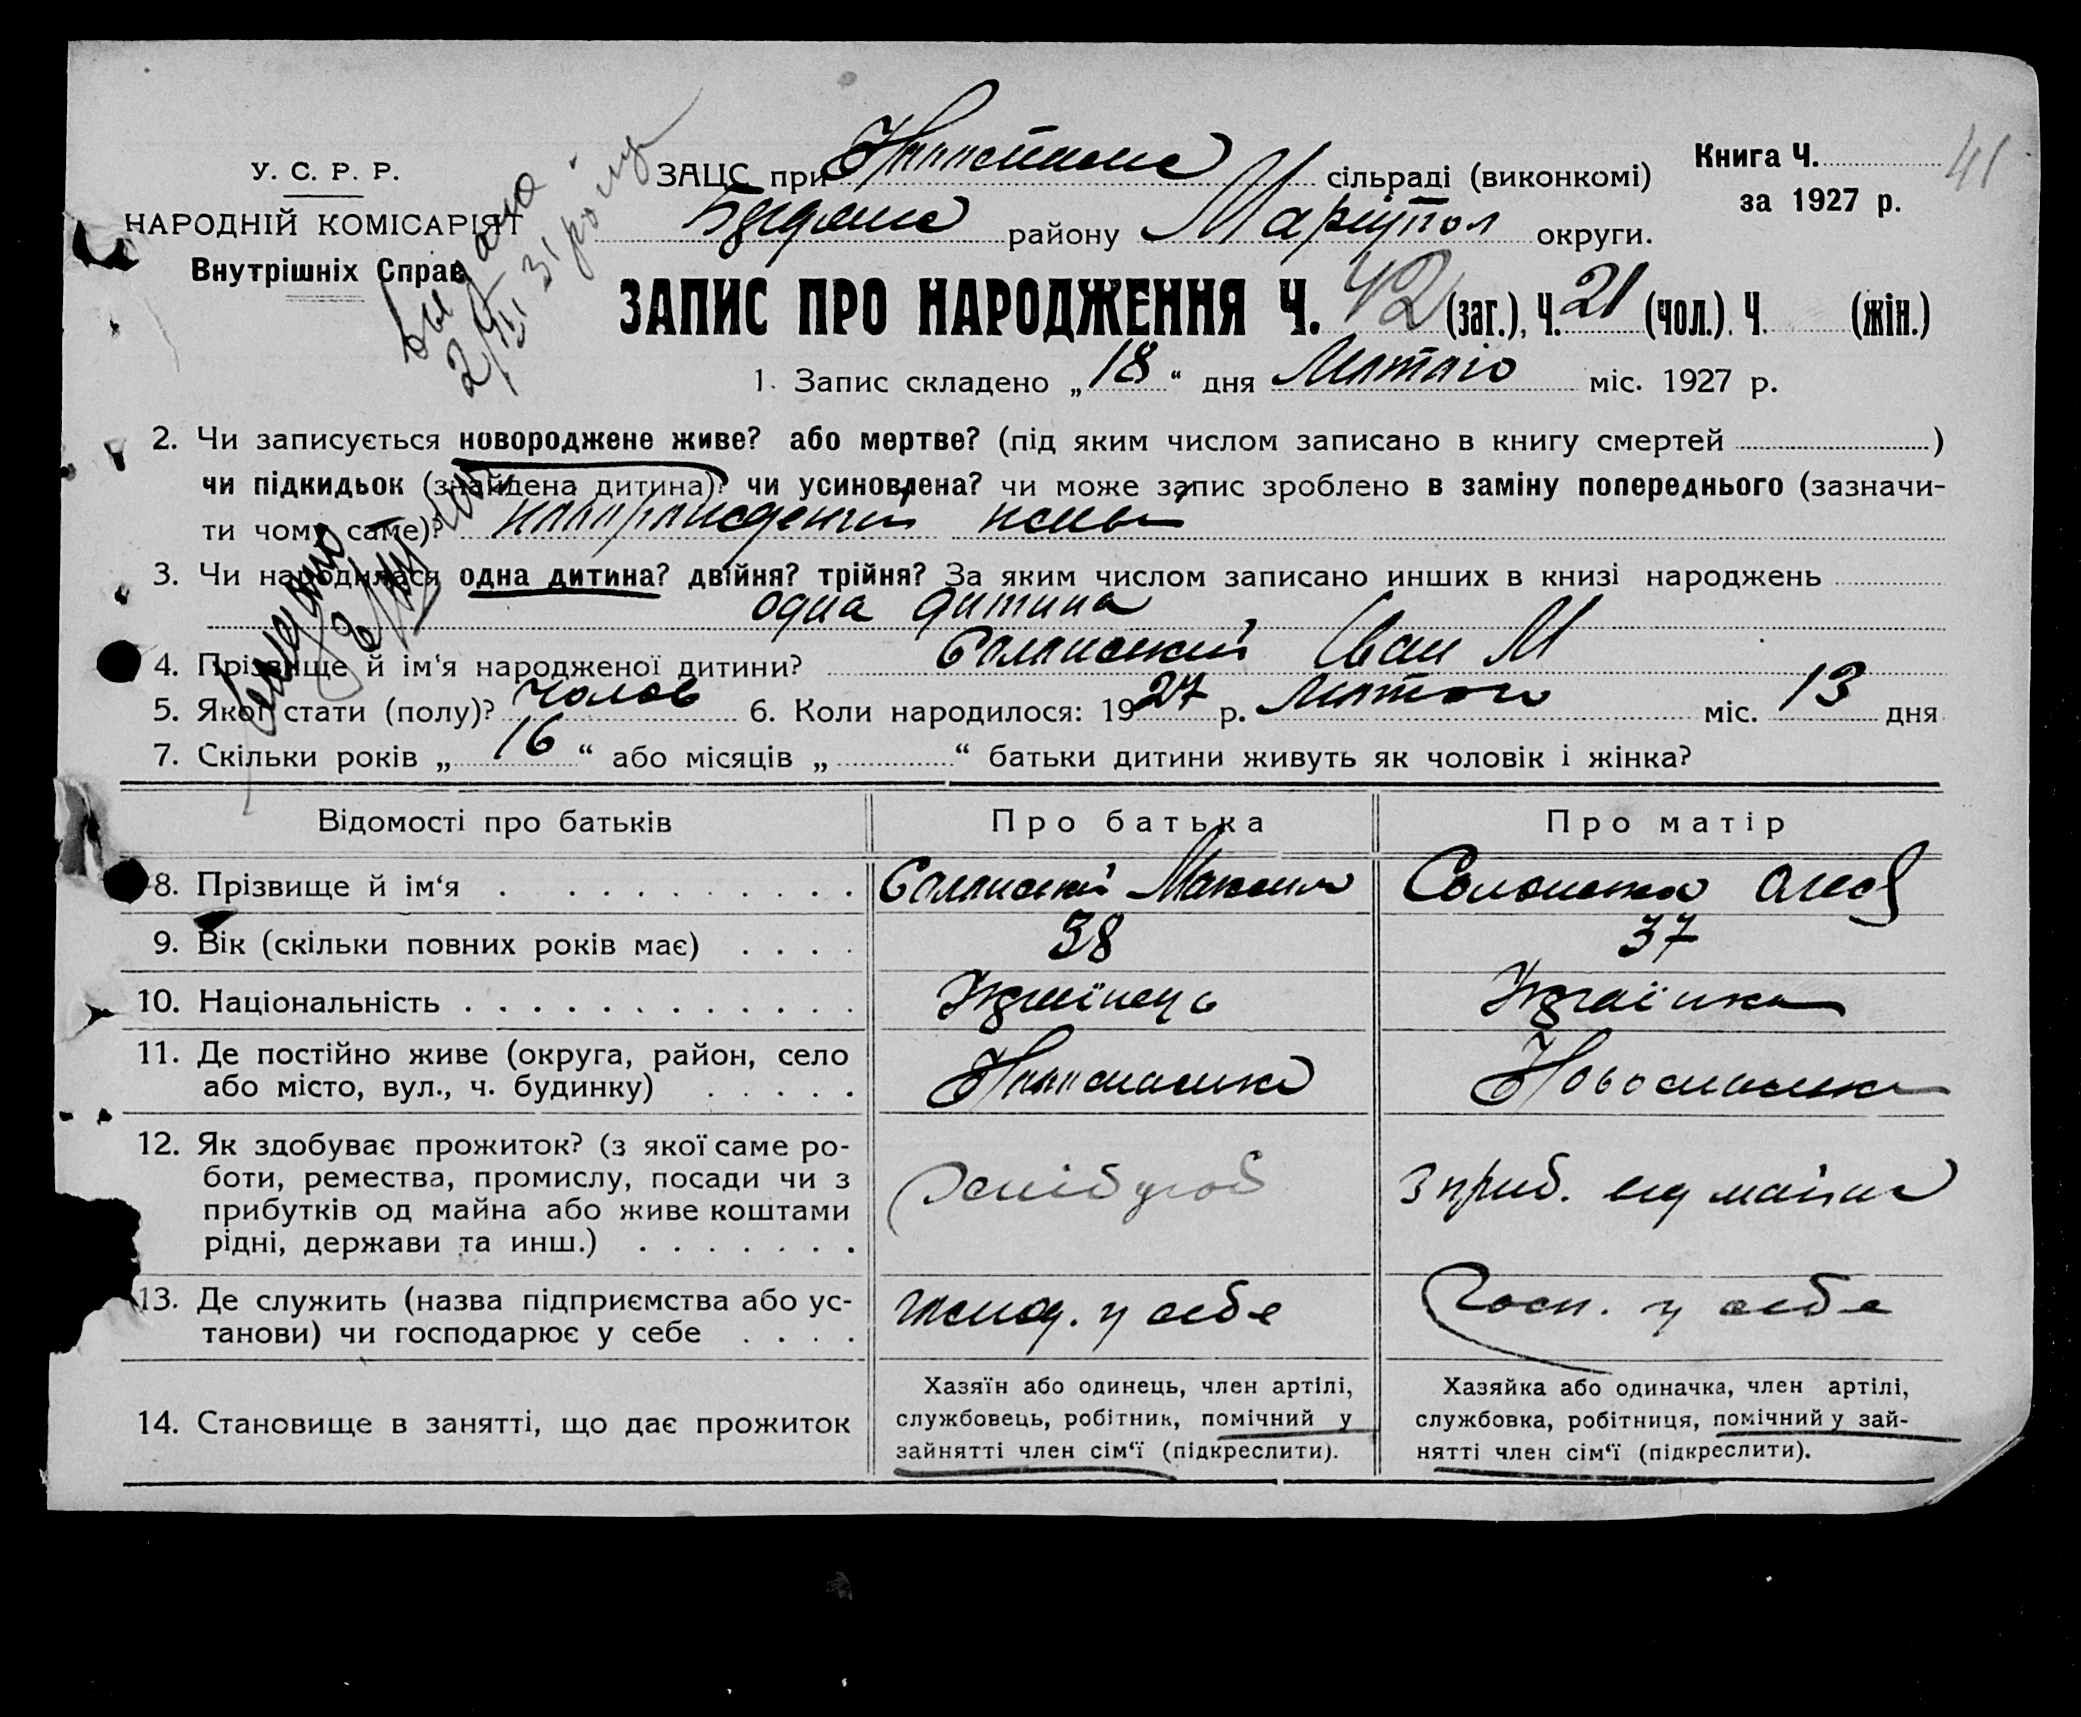 У. С. Р. Р.
НАРОДНІЙ КОМІСАРІЯТ
Внутрішніх Справ
ЗАЦС при сільраді (виконкомі)
району Маріупол округи.
Книга Ч. 41
за 1927 р.
ЗАПИС ПРО НАРОДЖЕННЯ Ч. 42 (заг.), Ч. 21 (чол.). Ч. (жін.)
1. Запис складено „ 18 “ дня Лютого міс. 1927 р.
2. Чи записується новороджене живе? або мертве? (під яким числом записано в книгу смертей )
чи підкидьок (знайдена дитина)? чи усиновлена? чи може запис зроблено в заміну попереднього (зазначи-
ти чому саме)?
3. Чи народилася одна дитина? двійня? трійня? За яким числом записано инших в книзі народжень
одна дитина
4. Прізвище й ім‘я народженої дитини? Іван М
5. Якої стати (полу)? чолов 6. Коли народилося: 1927 р. Лютого міс. 13 дня
7. Скільки років „ 16 “ або місяців „ “ батьки дитини живуть як чоловік і жінка?
Відомості про батьків Про батька Про матір
8. Прізвище й ім‘я Максим
9. Вік (скільки повних років має) 38 37
10. Національність Українець Українка
11. Де постійно живе (округа, район, село
або місто, вул., ч. будинку)
12. Як здобуває прожиток? (з якої саме ро-
боти, ремества, промислу, посади чи з
прибутків од майна або живе коштами
рідні, держави та инш.)
хлібороб
з приб. від майна
13. Де служить (назва підприємства або ус-
танови) чи господарює у себе
господ. у себе
Госп. у себе
14. Становище в занятті, що дає прожиток
Хазяїн або одинець, член артілі,
службовець, робітник, помічний у
зайнятті член сім‘ї (підкреслити).
Хазяйка або одиначка, член артілі,
службовка, робітниця, помічний у зай-
нятті член сім‘ї (підкреслити).